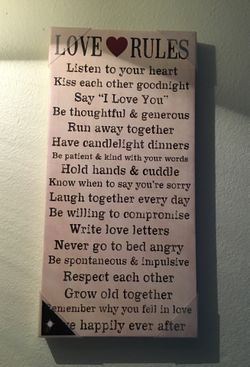 LOVE RULES
Listen to your heart
Kiss each other goodnight
Say "I Love You"
Be thoughtful & generous
Run away together
Have candlelight dinners
Be patient & kind with your words
Hold hands & cuddle
Know when to say you're sorry
Laugh together every day
Be willing to compromise
Write love letters
Never go to bed angry
Be spontaneous & impulsive
Respect each other
Grow old together
emember why you fell in love
e happily ever after